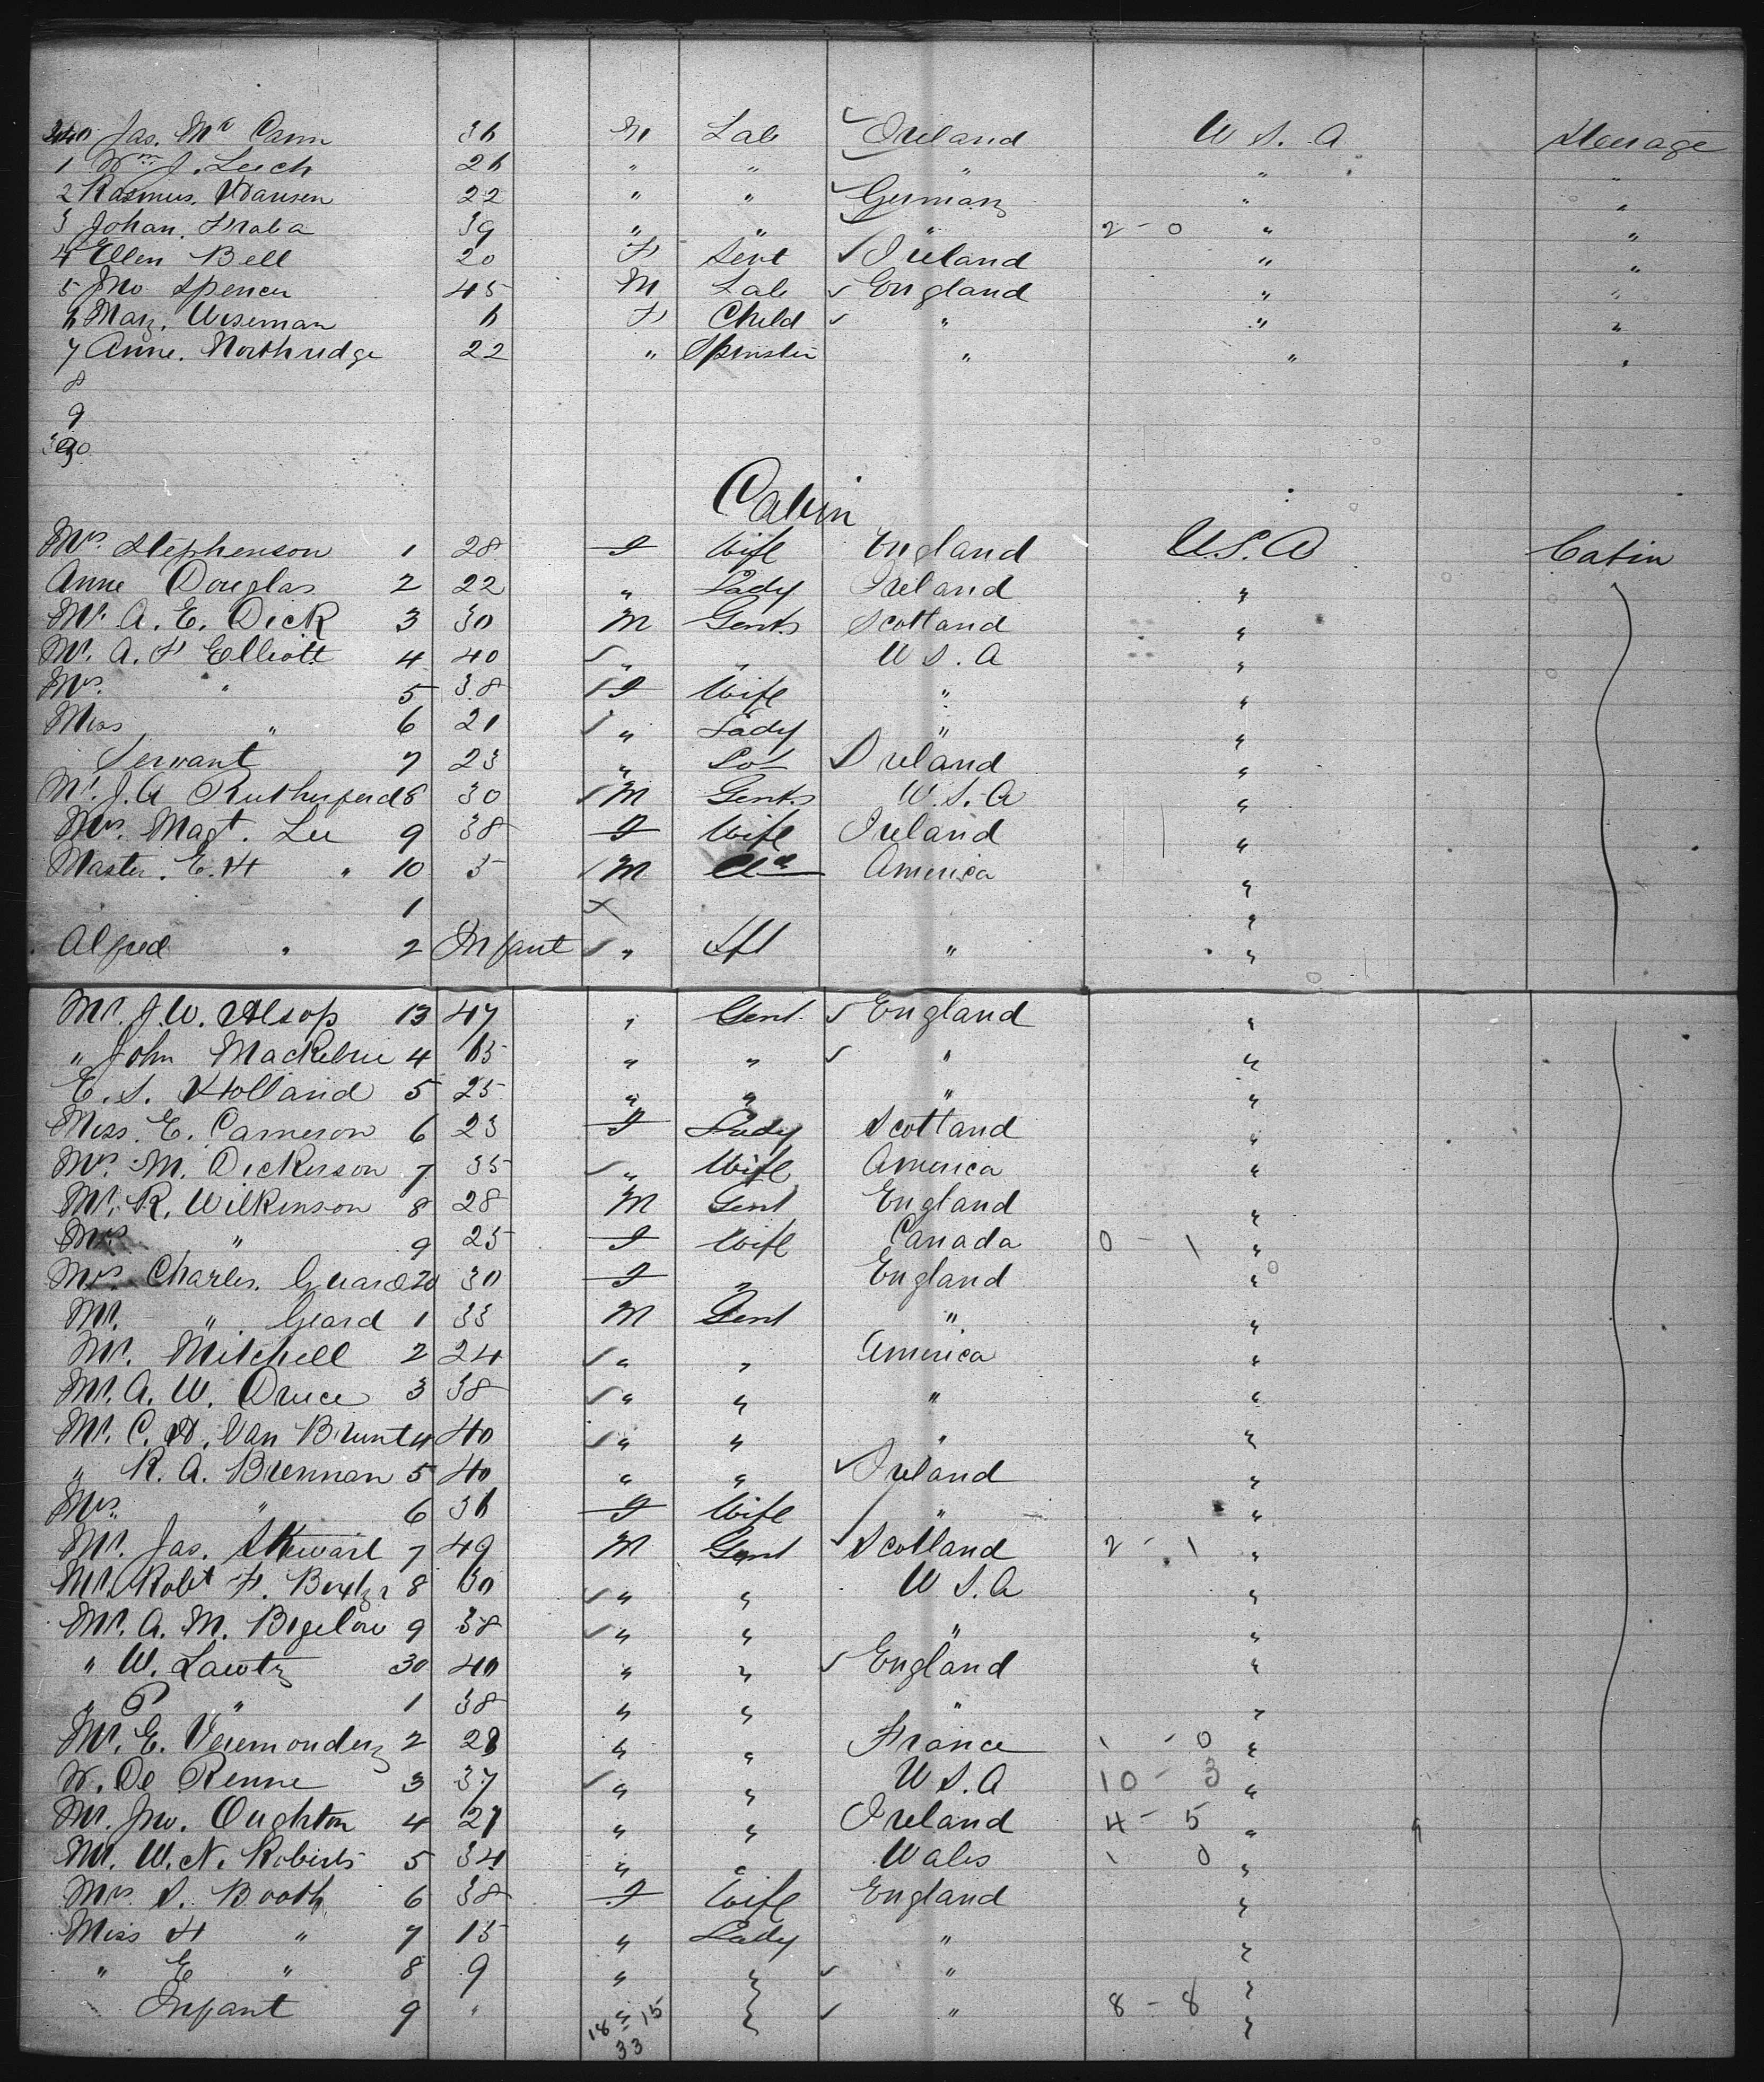 340 Jas. Mc Cann 36 M Lab Ireland U S. A Steerage
1 Wm J. Leech 26 " " " " "
2 Rasmus. Hansen 22 " " Germany " "
3 Johan. Fraba 39 " " " 2 - 0 " "
4 Ellen Bell 20 F Servt Ireland " "
5 Jno Spencer 45 M Lab England " "
6 Mary. Wiseman 6 F Child " " "
7 Anne. Northridge 22 " Spinster " " "
8
9
Cabin
Mrs. Stephenson 1 28 F Wife England U.S.A Cabin
Anne Douglas 2 22 " Lady Ireland "
Mr. A. E. Dick 3 30 M Gents Scotland "
Mr. A. F Elliott 4 40 " " U S. A "
Mrs. " 5 38 F Wife " "
Miss " 6 21 " Lady " "
Servant 7 23 " Do Ireland "
Mr. J. A Rutherford 8 30 M Gents U.S.A "
Mrs. Magt. Lee 9 38 F Wife Ireland "
Master. E. H " 10 5 M Cd America "
1 "
Alfred " 2 Infant " Ift " "
Mr. J. W. Alsop 13 47 " Gent. England "
" John Mackebrie 4 65 " " " "
E. S. Holland 5 25 " " " "
Miss. E. Cameron 6 23 F Lady Scotland "
Mrs. M. Dickerson 7 35 " Wife America "
Mr. R. Wilkinson 8 28 M Gent England "
Mrs " 9 25 F Wife Canada 0 - 1 "
Mrs Charles. Geard 20 30 F " England "
Mr. " Geard 1 33 M Gent " "
Mr. Mitchell 2 24 " " America "
Mr. A. W. Druce 3 38 " " " "
Mr. C. H. Van Brunt 4 40 " " " "
" R. A. Brennan 5 40 " " Ireland "
Mrs. " 6 36 F Wife " "
Mr. Jas. Stewart 7 49 M Gent Scotland 2 - 1 "
Mr. Robt F. 8 " " U S. A "
Mr. A. M. Bigelow 9 38 " " " "
" W. Lawtz 30 40 " " England "
" P " 1 38 " " " "
Mr. E. Veremondez 2 28 " " France 1 - 0 "
W. De Renne 3 37 " " U S. A 10 - 3 "
Mr. Jno. Oughton 4 27 " " Ireland 4 - 5 "
Mr. W. N. Roberts 5 34 " " Wales 1 0 "
Mrs S. Booth 6 38 F Wife England "
Miss H " 7 15 " Lady " "
" E " 8 9 " " " "
Infant 9 " " " " 8 - 8 "
18 15
33